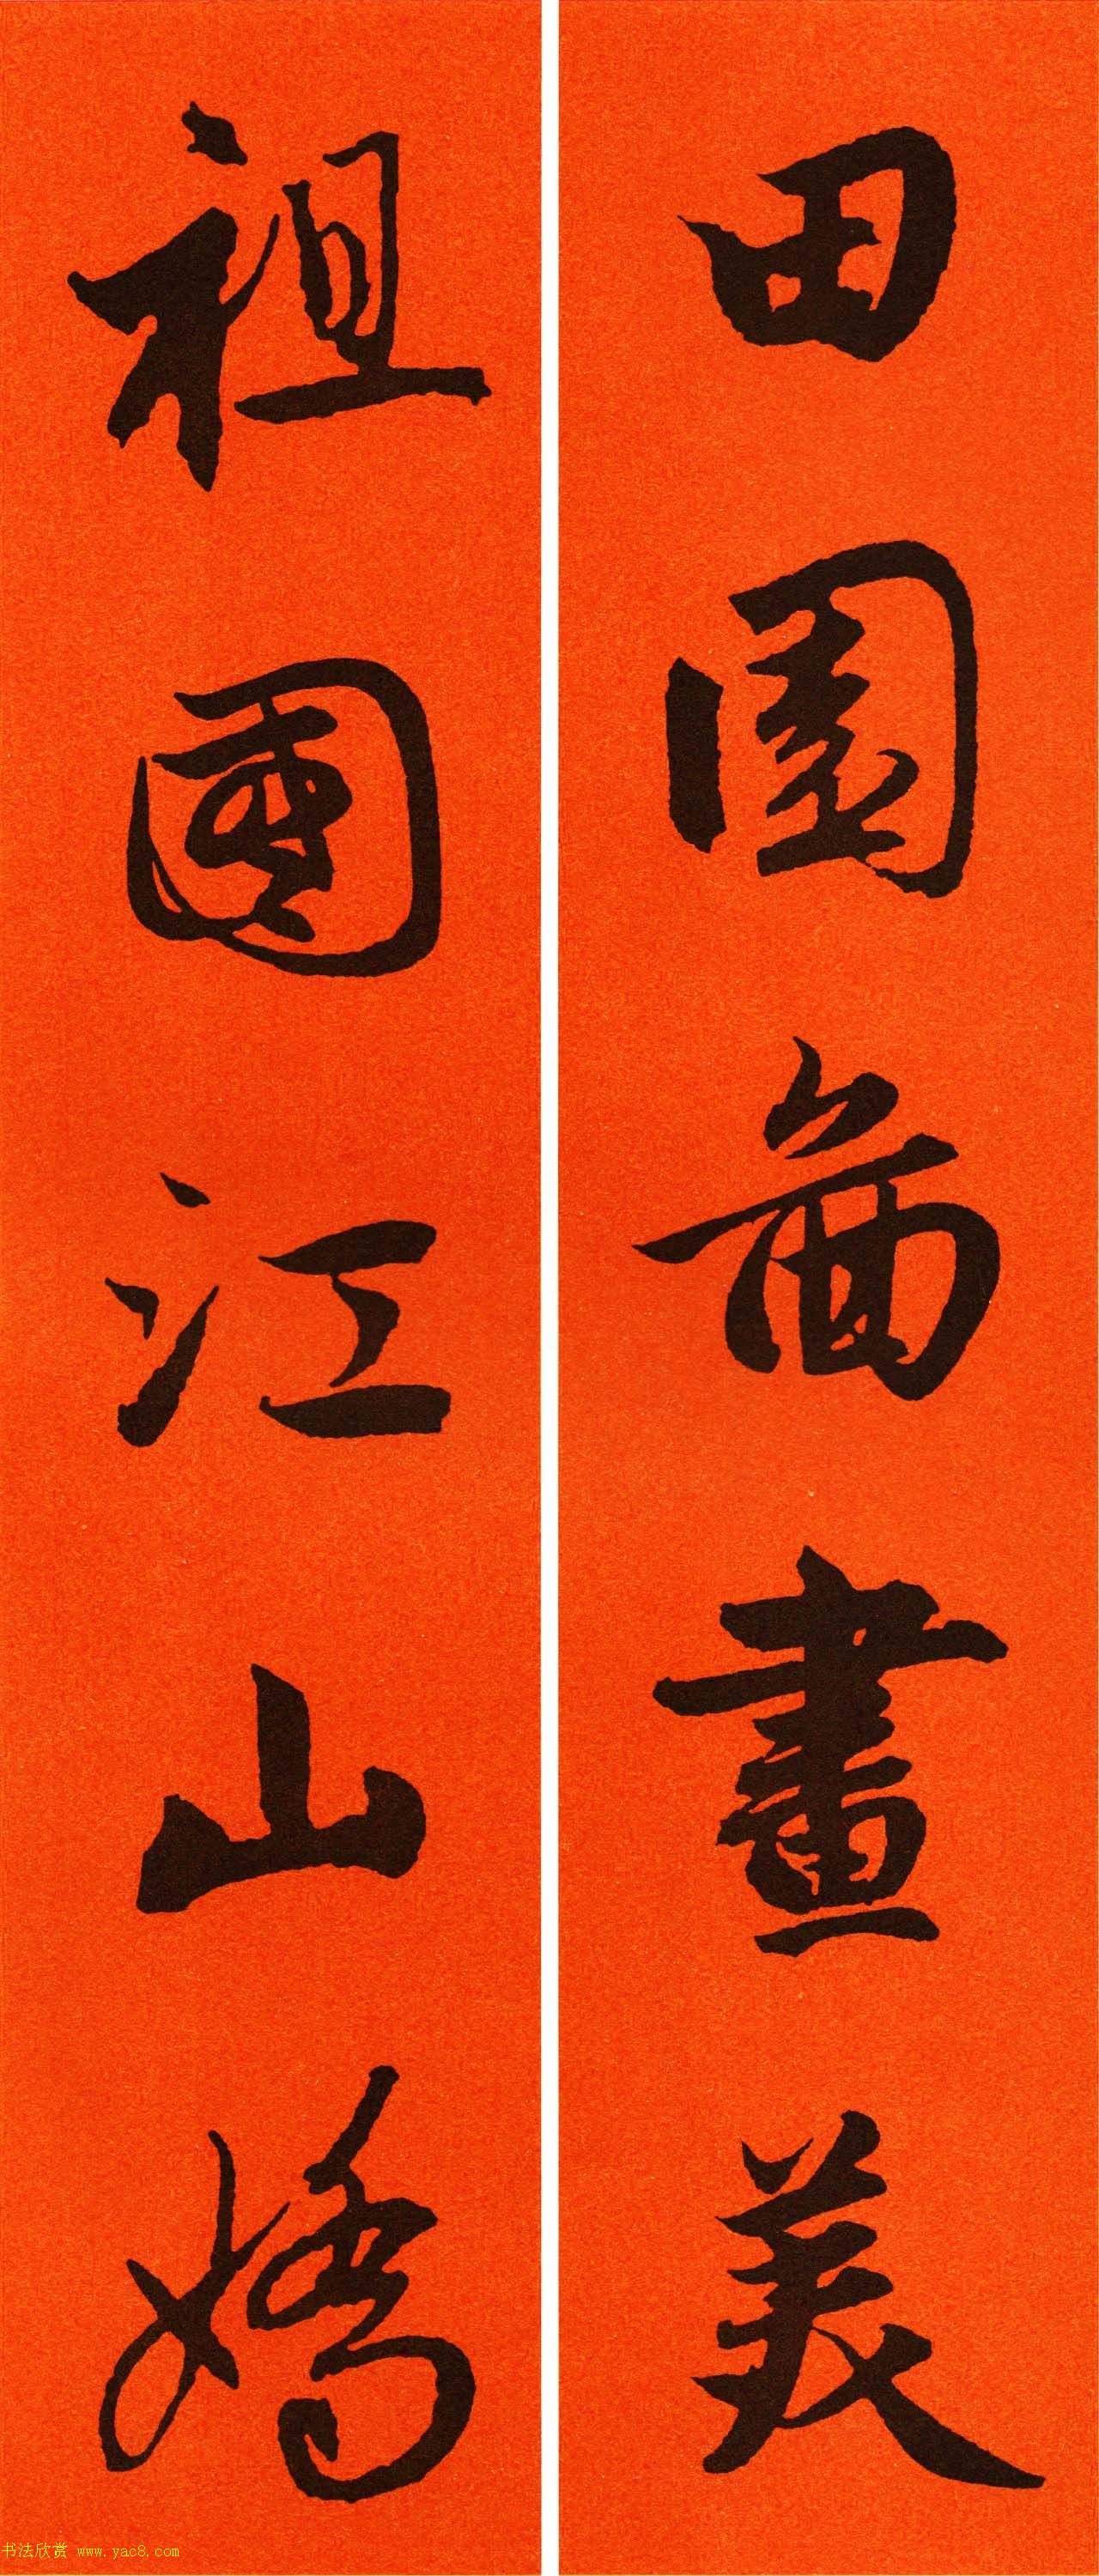 田園圖畫美
祖國江山嬌
书法欣赏 www.yac8.com